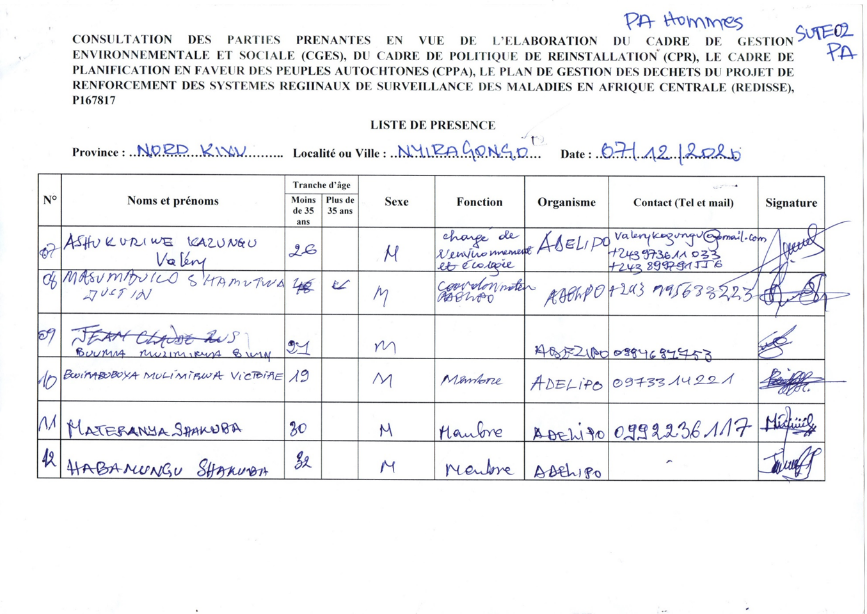 PA Hommes
SUITE 02
PA
CONSULTATION DES PARTIES PRENANTES EN VUE DE L'ELABORATION DU CADRE DE GESTION
ENVIRONNEMENTALE ET SOCIALE (CGES), DU CADRE DE POLITIQUE DE REINSTALLATION (CPR), LE CADRE DE
PLANIFICATION EN FAVEUR DES PEUPLES AUTOCHTONES (CPPA), LE PLAN DE GESTION DES DECHETS DU PROJET DE
RENFORCEMENT DES SYSTEMES REGIINAUX DE SURVEILLANCE DES MALADIES EN AFRIQUE CENTRALE (REDISSE),
P167817
LISTE DE PRESENCE
Province : NORD KIVU Localité ou Ville : NYIRAGONGO Date : 07/12/2020
N° Noms et prénoms Tranche d'âge Moins de 35 ans Plus de 35 ans Sexe Fonction Organisme Contact (Tel et mail) Signature
07 ASHUKURIWE KAZUNGU Valery 26 M chargé de l'environnement et écologie ADELIPO valerykazungu@gmail.com +243 973611033
08 JUSTIN M ADELIPO +243 995633223
09 JEAN CLAUDE BUUMA MULIMIRWA M
10 MULIMIRWA VICTOIRE 19 M Membre ADELIPO 0973314221
11 MATERANYA SHAKUBA 30 M Membre ADELIPO 0992236117
12 HABAMUNGU SHAKUBA 32 M Membre ADELIPO